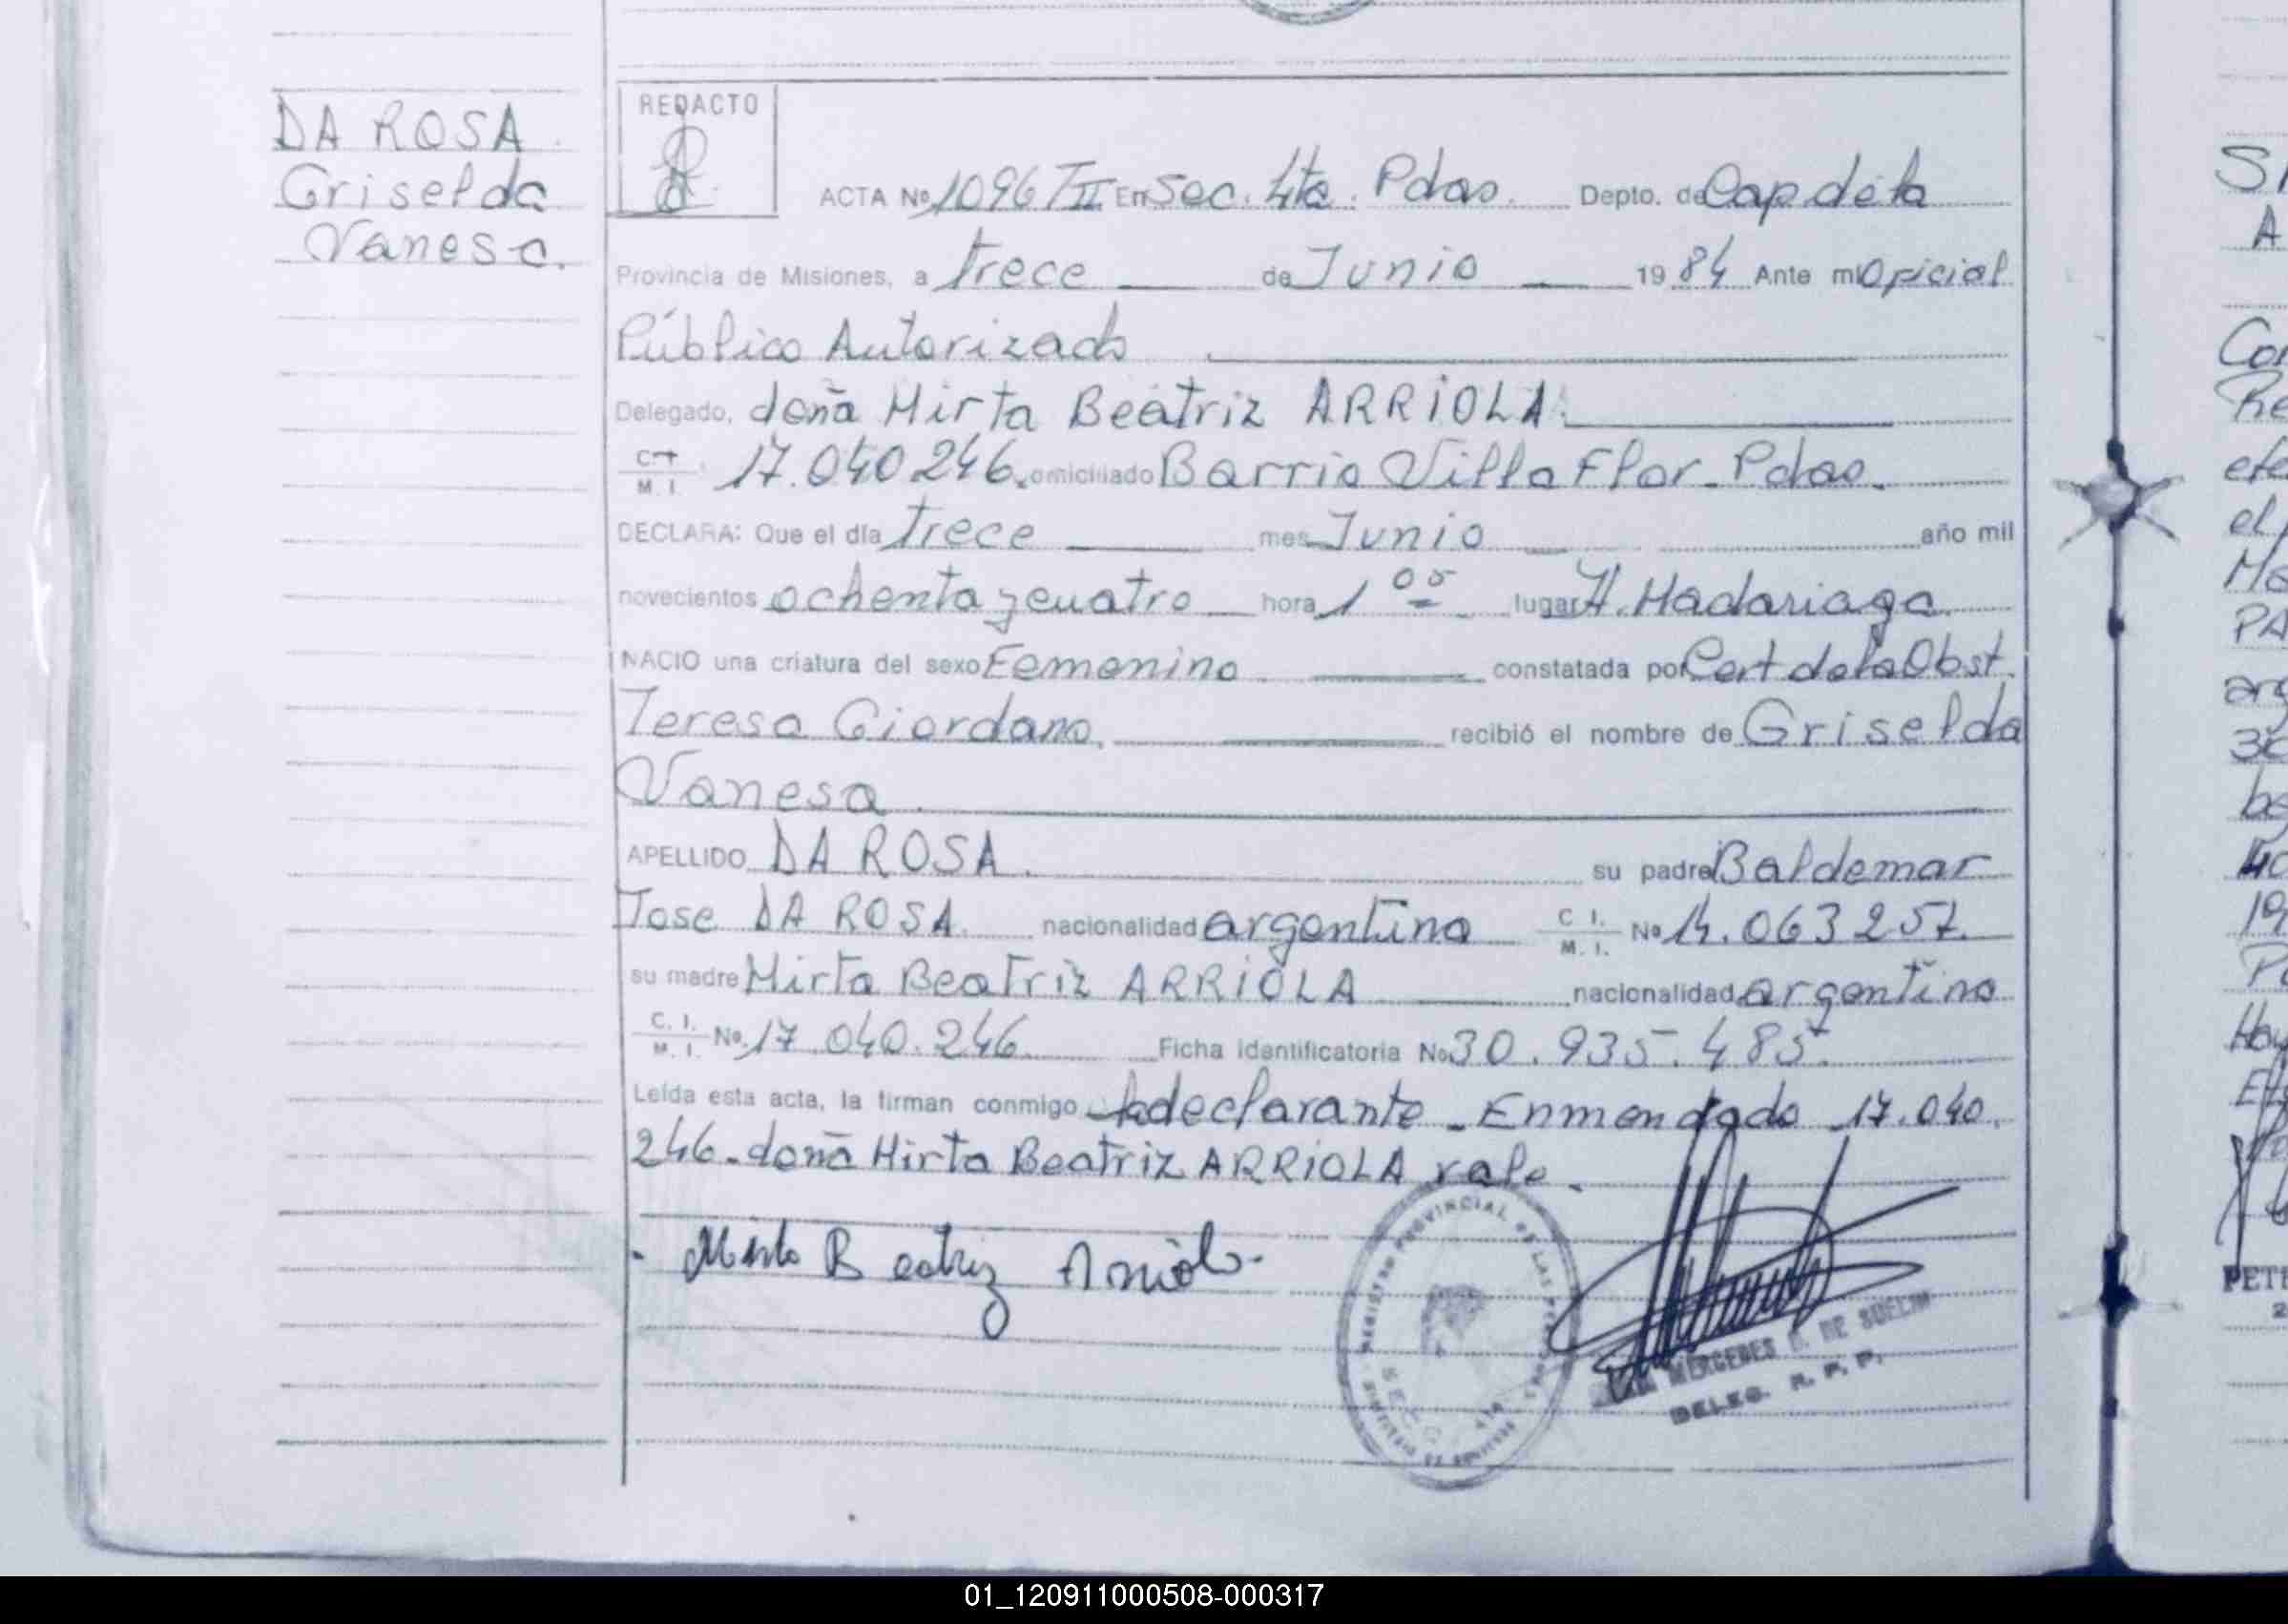 DA ROSA
Griselda
Vanesa.
REDACTO
ACTA Nº 1096 TII En Sec. 4ta. Pdas. Depto. de Cap de la
Provincia de Misiones, a trece de Junio 1984 Ante mi Oficial
Público Autorizado
Delegado, doña Mirta Beatriz ARRIOLA.
C.I. M. I. 17.040.246. domiciliado Barrio Villa Flor. Pdas.
DECLARA: Que el día trece mes Junio año mil
novecientos ochenta y cuatro hora 1 05 lugar H. Madariaga
NACIO una criatura del sexo Femenino constatada por Cert de la Obst.
Teresa Giordano, recibió el nombre de Griselda
Vanesa.
APELLIDO DA ROSA. su padre Baldemar
Jose DA ROSA. nacionalidad argentina C I. M. I. Nº 14.063257.
su madre Mirta Beatriz ARRIOLA nacionalidad argentina
C. I. M. I. Nº 17.040.246 Ficha identificatoria Nº 30.935.485.
Leída esta acta, la firman conmigo la declarante. Enmendado 17.040.
246. doña Mirta Beatriz ARRIOLA vale.
Mirta Beatriz Arriola
REGISTRO PROVINCIAL DE LAS
MERCEDES DE
DELEG. R. P. P.
01_120911000508-000317